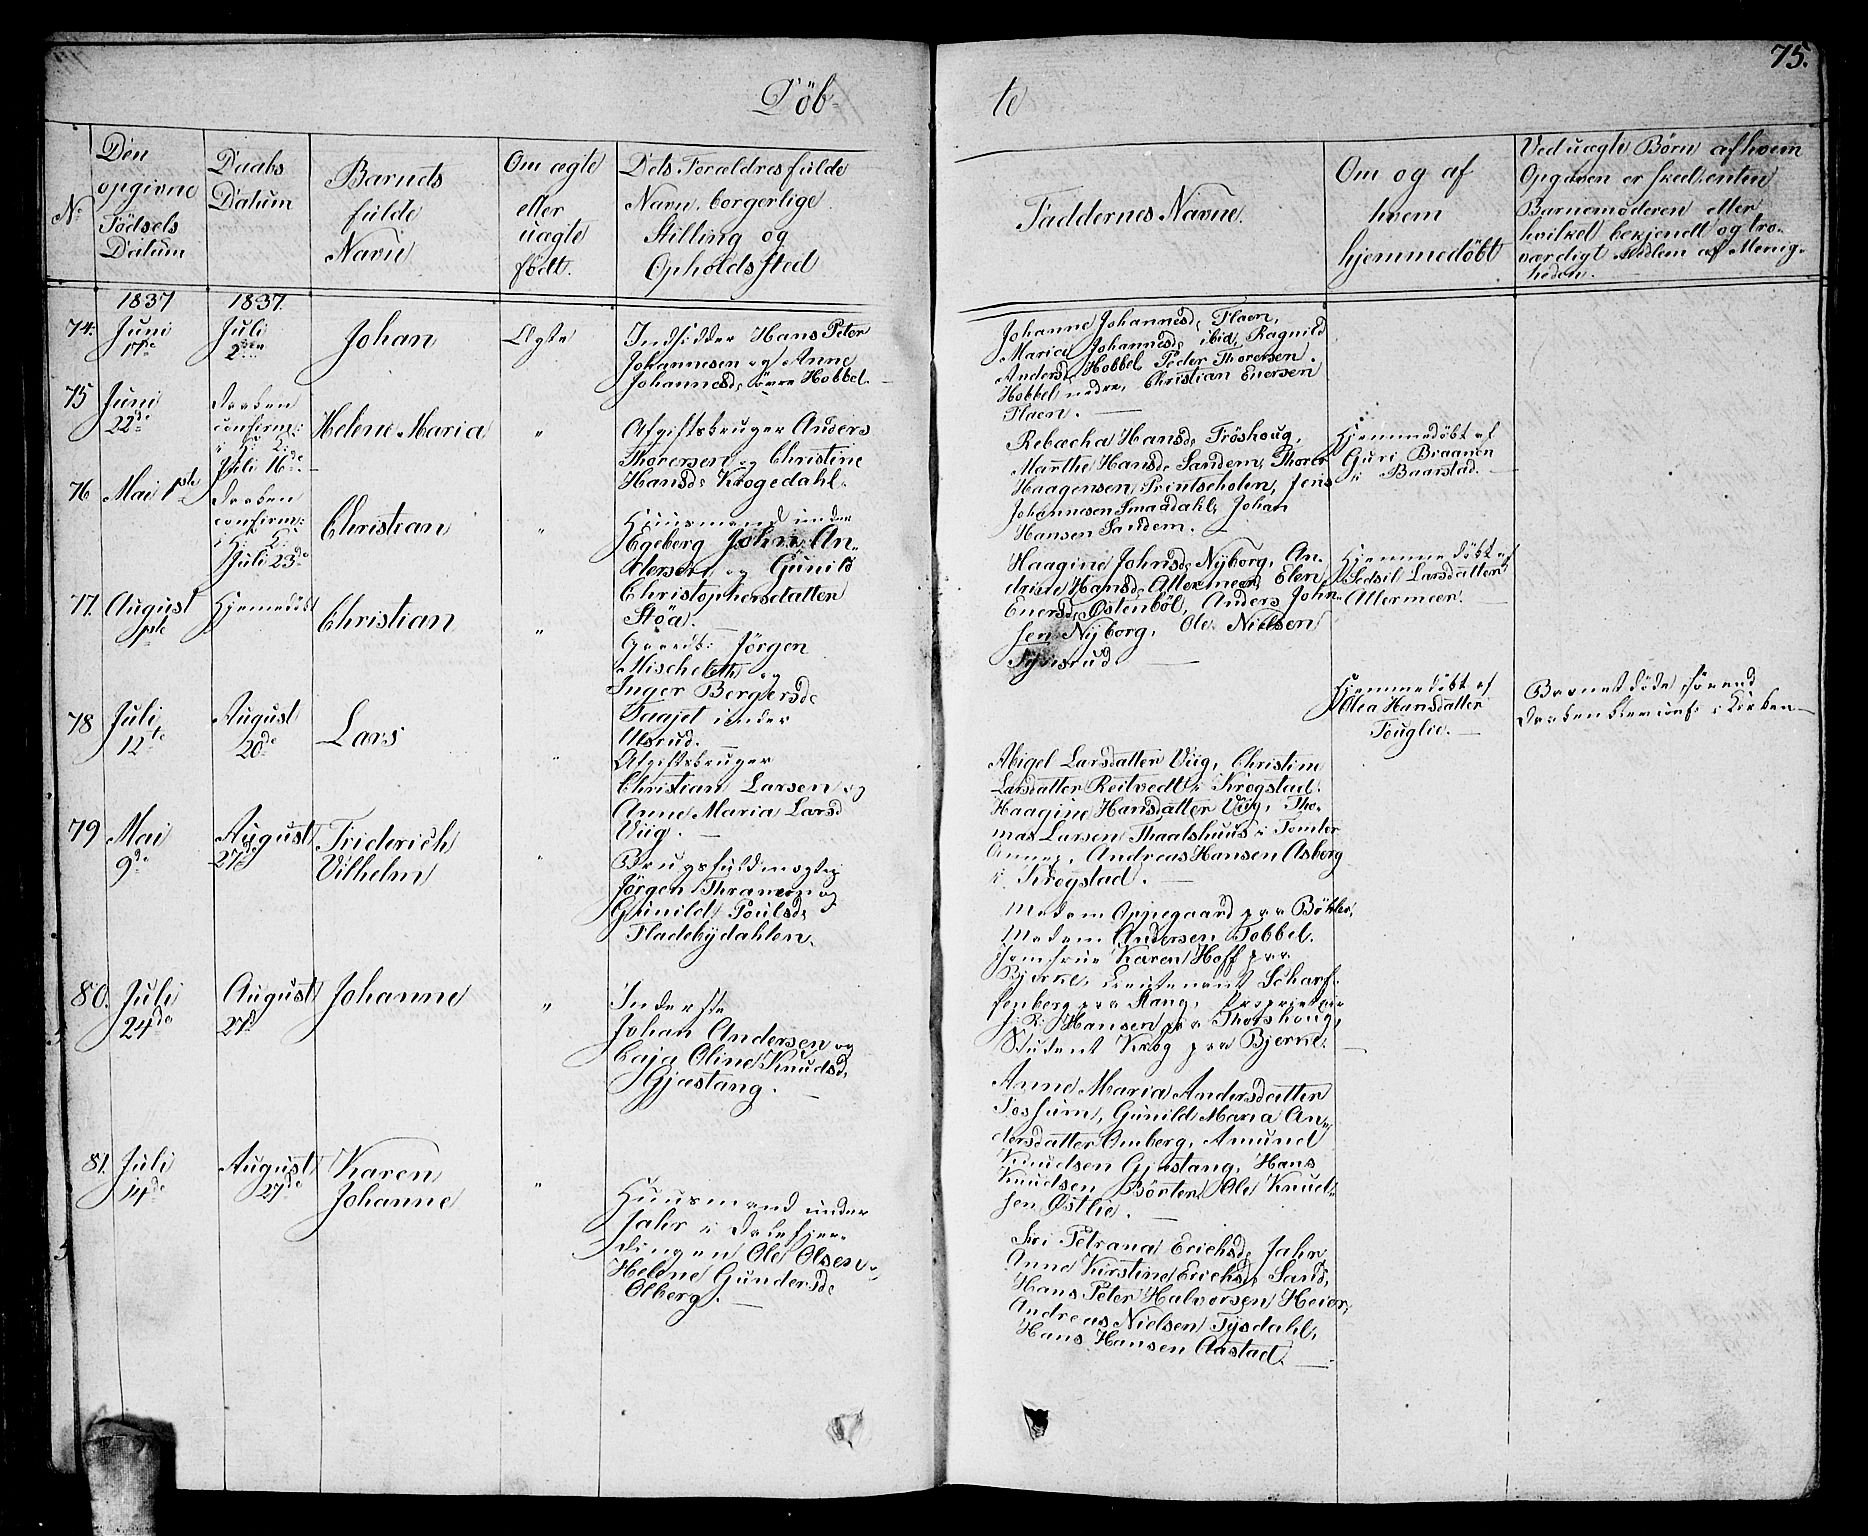 75.
Döb-
te
No
Den
opgivne
Födsels
Datum
Daabs
Datum
Barnets
fulde
Navn
Om ægte
eller
uægte
födt.
Dets Forældres fulde
Navn, borgerlige
Stilling og
Opholdssted
Faddernes Navne.
Om og af
hvem
hjemmedöbt
Ved uægte Börn af hvem
Opgaven er skedt, enten
Barnemoderen eller
hvilket bekjendt og tro-
værdigt Medlem af Menig-
heden.
1837
1837.
74.
Juni
17de
Juli
2den
Johan
Ægte
Indsidder Hans Peter
Johannesen og Anne
Johannesd. övre Hobbel.
Johanne Johannesd. Flaen,
Maria Johannesd. ibid, Ragnild
Andersd. Hobbel, Peder Thoresen
Hobbel nedre, Christian Enersen
Flaen.
75
Juni
22de
Daaben
confirm:
i H: K:
Juli 16de
Helene Maria
"
Afgiftsbruger Anders
Thoresen og Christine
Hansd. Krogedahl.
Rebacha Hansd. Fröshoug,
Marthe Hansd. Sandem, Thorer
Haagensen Printseholen, Jens
Johannesen Smaadahl, Johan
Hansen Sandem.
Hjemmedöbt af
Guri Braanen
i Baarstad.
76
Mai 1ste
Daaben
confirm:
i H: K:
Juli 23de
Christian
"
Huusmand under
Egeberg John An-
dersen og Gunild
Christophersdatter
Stöa.
Haagine Johnsd. Nyborg, An-
drine Hansd. Attermeer, Elen
Enersd. Østenböl, Anders John-
sen Nyborg, Ole Nielsen
Tysisrud
Hjemmedöbt af
Sidsil Larsdatter
Attermeer.
77.
August
1ste
Hjemedöbt
Christian
"
Gaardb: Jörgen
Mischeleth og
Inger Bergersd.
Taajet under
Morud.
Hjemmedöbt af
Olea Hansdatter
Fouglie.
Barnet döde, förend
Daaben blev conf: i Kirken
78
Juli
12te
August
20de
Lars
"
Afgiftsbruger
Christian Larsen og
Anne Maria Larsd
Viig.
Abigel Larsdatter Viig, Christine
Larsdatter Reitvedt i Krogstad,
Haagine Hansdatter Viig, Tho-
mas Larsen Thaalshuus i Tomter
Annex, Andreas Hansen Asberg
i Krogstad.
79
Mai
9de
August
27de
Friderich
Vilhelm
"
Brugsfuldmægtig
Jörgen Thranem og
Gunild Poulsd.
Fladebydahlen.
Madam Oppegaard paa Böhler,
Madam Andersen Tobbel.
Jomfrue Karen Hoff paa
Bjerke, Lieutenant Scharf-
fenberg paa Stang, Proprietair
J. R. Hansen paa Thorshoug,
Student Krog paa Bjerke.
80.
Juli
24de
August
27de
Johanne
"
Inderste
Johan Andersen og
Caja Oline Knudsd.
Gjæstang.
Anne Maria Andersdatter
Fossum, Gunild Maria An-
dersdatter Omberg, Amund
Knudsen Gjæstang, Hans
Knudsen Börter, Ole Knud-
sen Østlie.
81.
Juli
14de
August
27de
Karen
Johanne
"
Huusmand under
Jahr i Dalefjer-
dingen Ole Olsen
Helene Gundersd.
Olberg.
Siri Petrana Erichsd. Jahr,
Anne Kirstine Erichsd. Sand,
Hans Peter Halvorsen Heier,
Andreas Nielsen Tysdahl,
Hans Hansen Aastad.